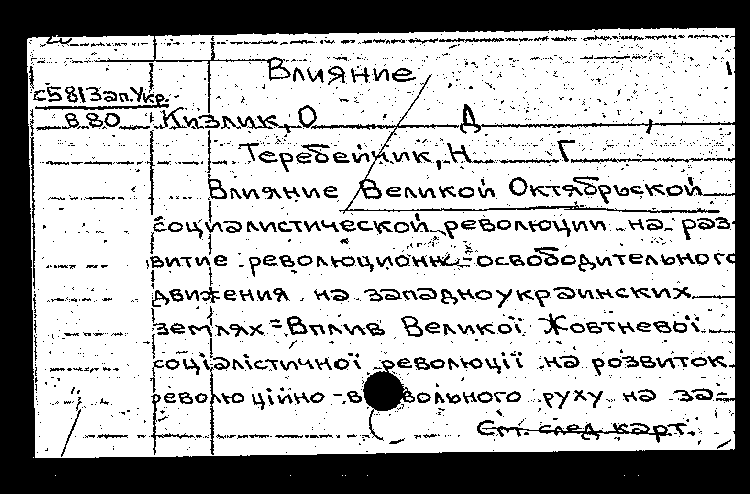 Влияние
с5813ап.Укр.
В.80 Кизлик, О Д ,
Теребейчик, Н Г
Влияние Великой Октябрьской
социалистической революции на раз-
витие революционн.-освободительного
движения на западноукраинских
землях=Вплив Великої Жовтневої
соціалістичної революції на розвиток
революційно-в вольного руху на за-
См. след. карт.